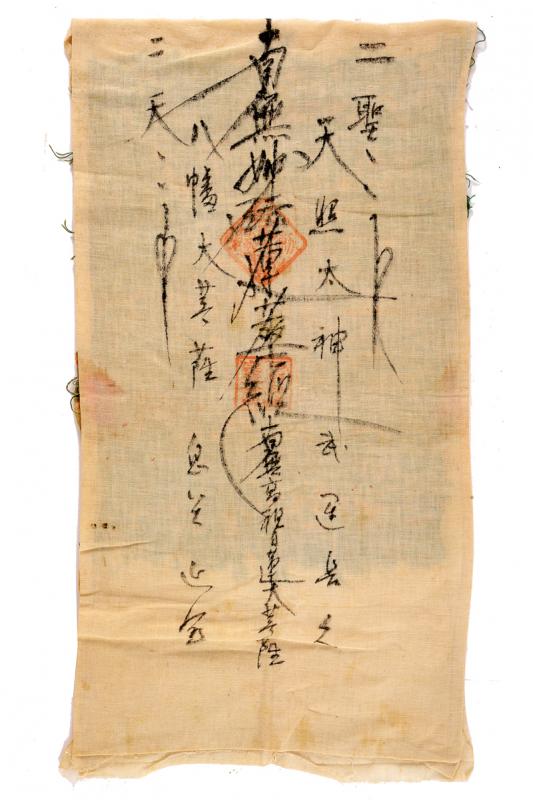 二聖
天照太神 武運長久
南無妙法蓮華経 南無高祖日蓮大菩薩
八幡大菩薩 息災延命
二天